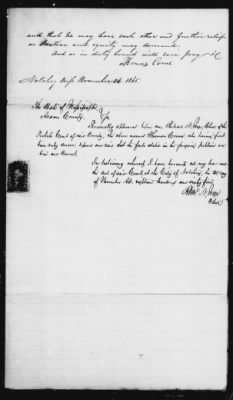 and that he may have such other and further relief
as Justice and equity may demand.
And as in duty bound will ever pray &c
Thomas
Natchez Miss November 24. 1865.
The State of Mississippi
Adams County.
Personally appeared before me, Clerk of the
Probate Court of said County, the above named Thomas who being first
duly sworn, upon oath said that the facts stated in the foregoing petition
are true
In testimony whereof I have hereunto set my hand and
the seal of said Court, at the City of Natchez, this day
of November A.D. eighteen hundred and sixty five
Clerk